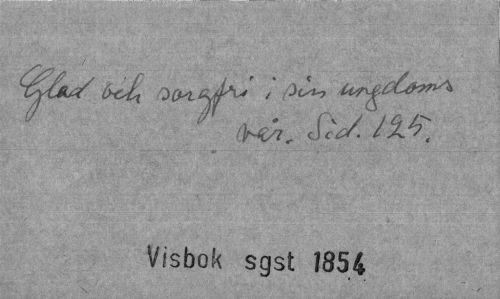 Glad och sorgfri i sin ungdoms
vår. Sid. 125.
Visbok sgst 1854